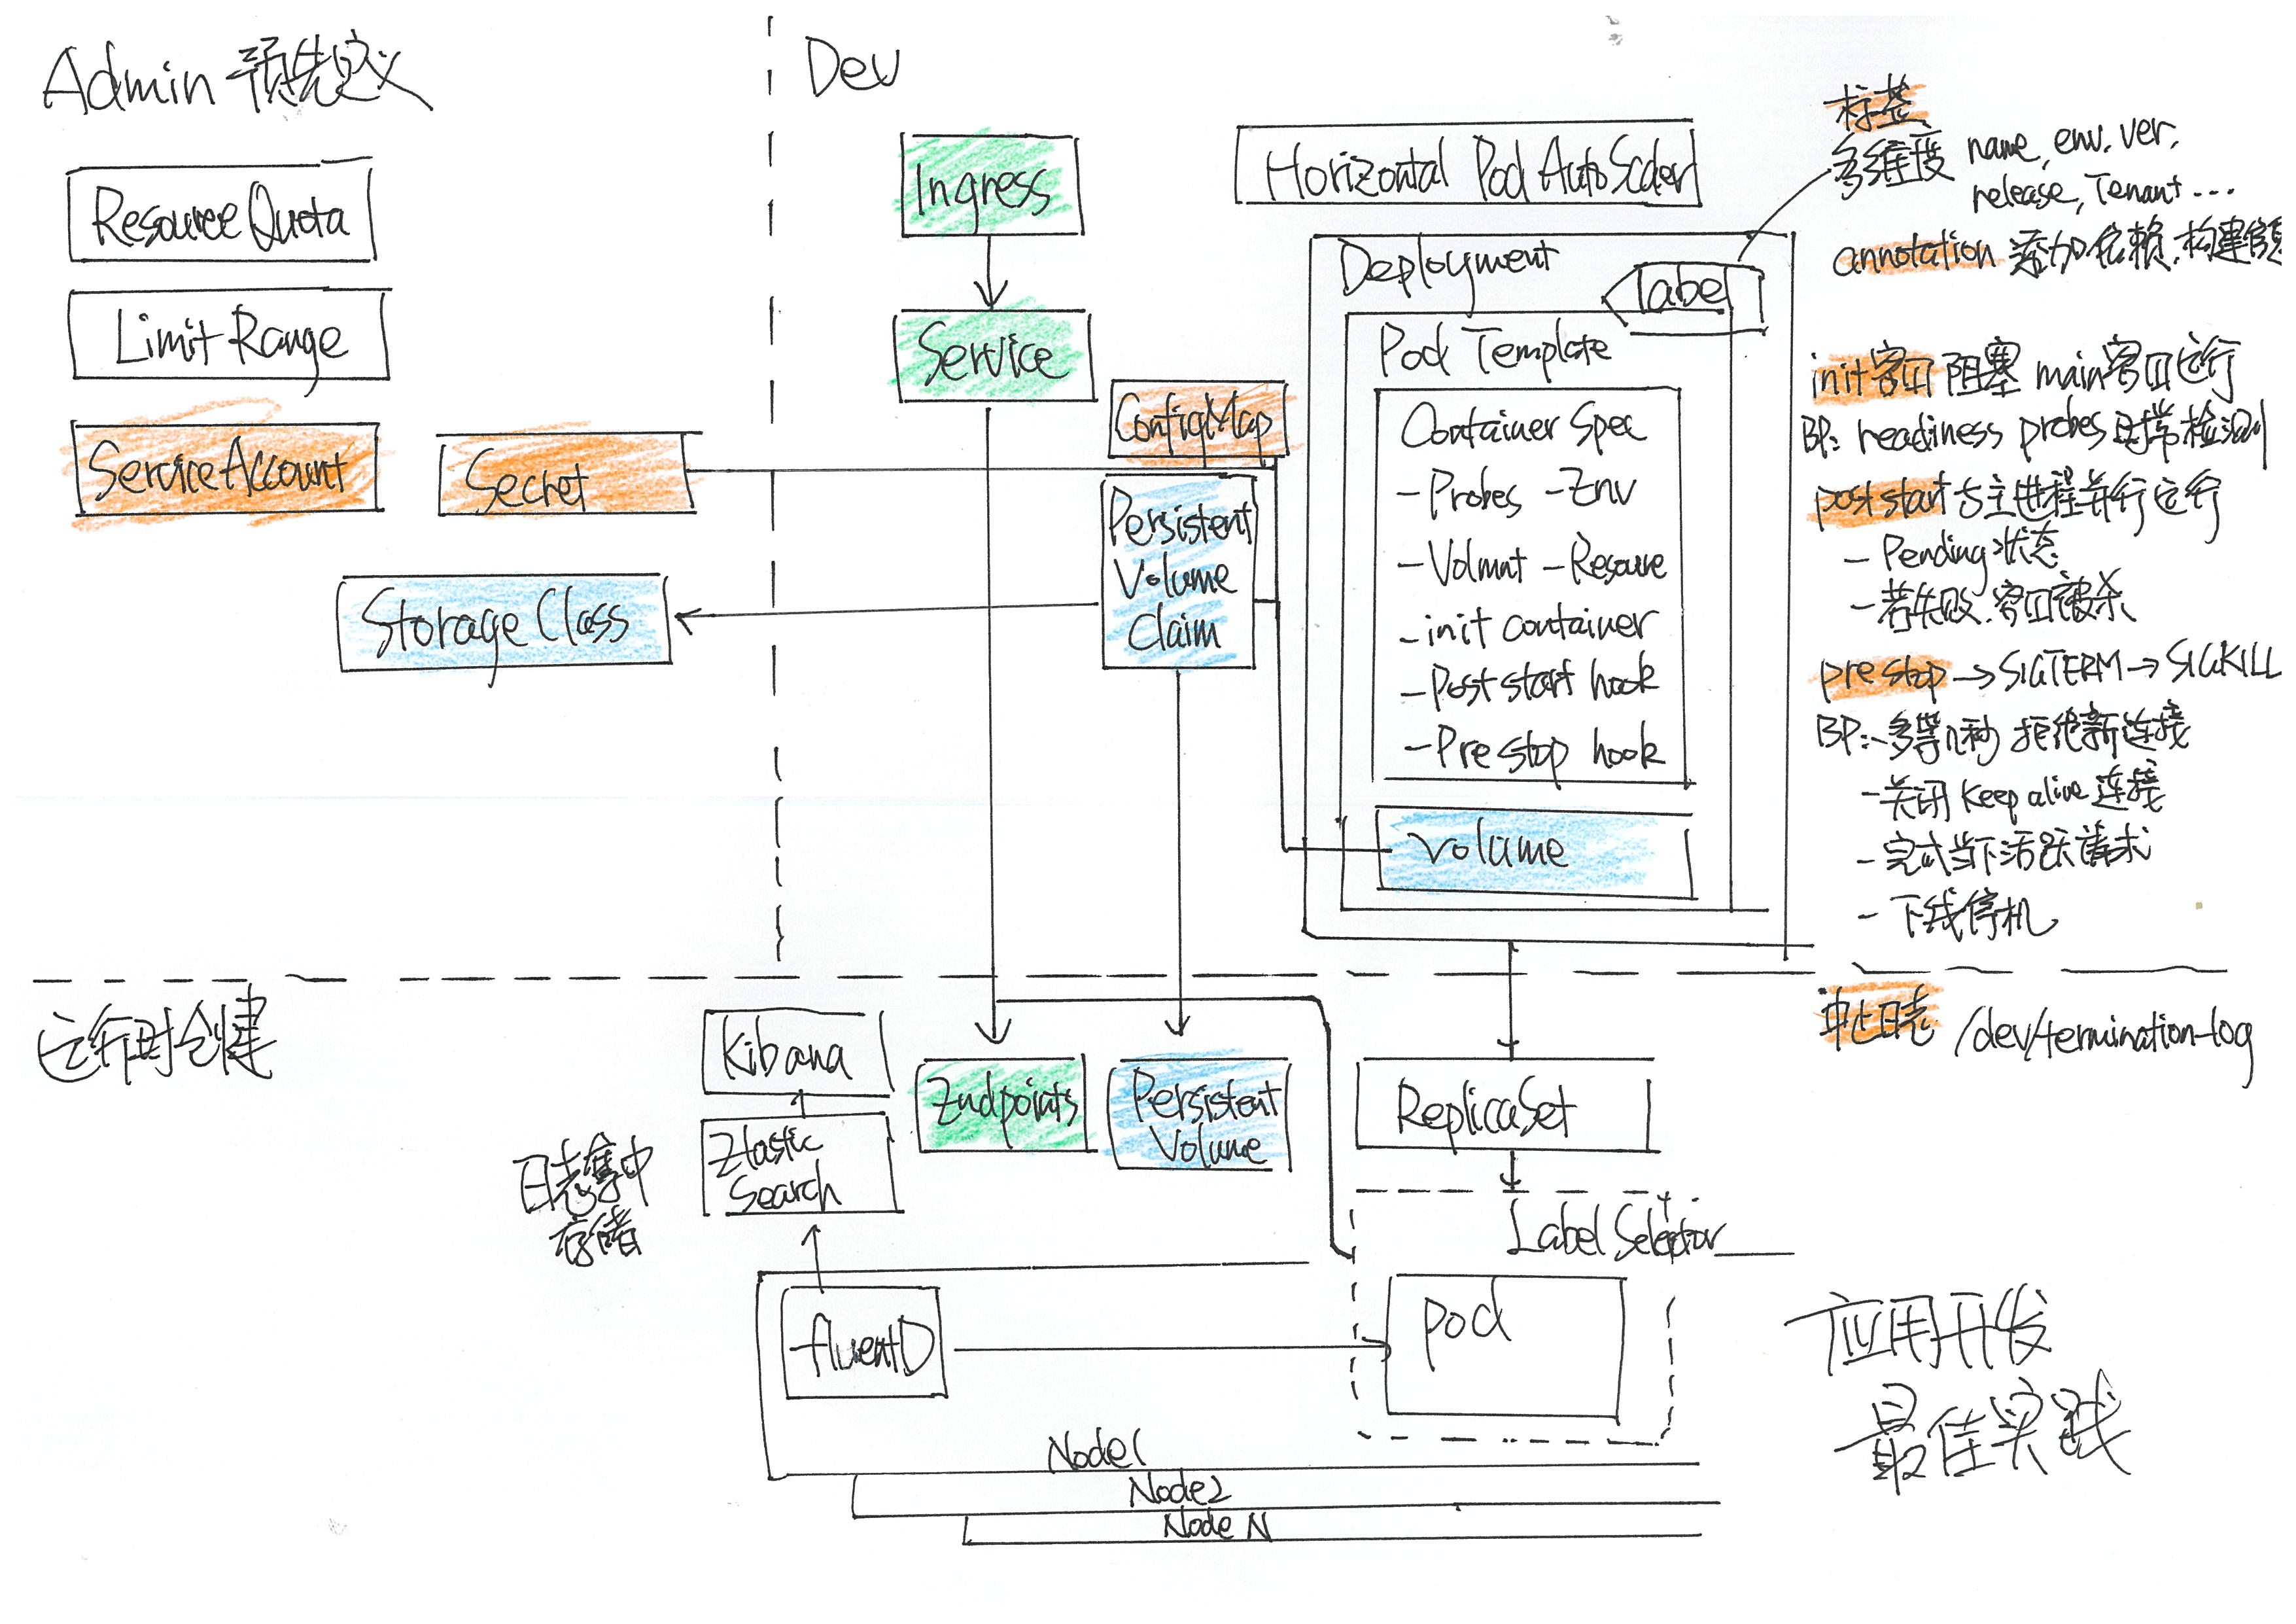 Admin 预先定义
Resource Quota
Limit Range
Service Account
Secret
Storage Class
Dev
Ingress
Service
ConfigMap
Persistent
Volume
Claim
Horizontal Pod AutoScaler
Deployment
label
Pod Template
Container Spec
- Probes - Env
- Volmnt - Resource
- init container
- Post start hook
- Pre stop hook
Volume
标签
多维度 name, env. ver,
release, Tenant...
annotation 添加依赖,构建信息
init容口 阻塞 main容口运行
BP: readiness probes 时常检测
post start 与主进程并行运行
- Pending状态
- 若失败.容口被杀
pre stop → SIGTERM → SIGKILL
BP: - 多等几秒 拒绝新连接
- 关闭 keep alive 连接
- 完成当下活跃请求
- 下线停机
运行时创建
Kibana
Elastic
Search
日志集中
存储
Endpoints
Persistent
Volume
ReplicaSet
Label Selector
fluentD
pod
Node1
Node2
Node N
日志 /dev/termination-log
应用开发
最佳实践